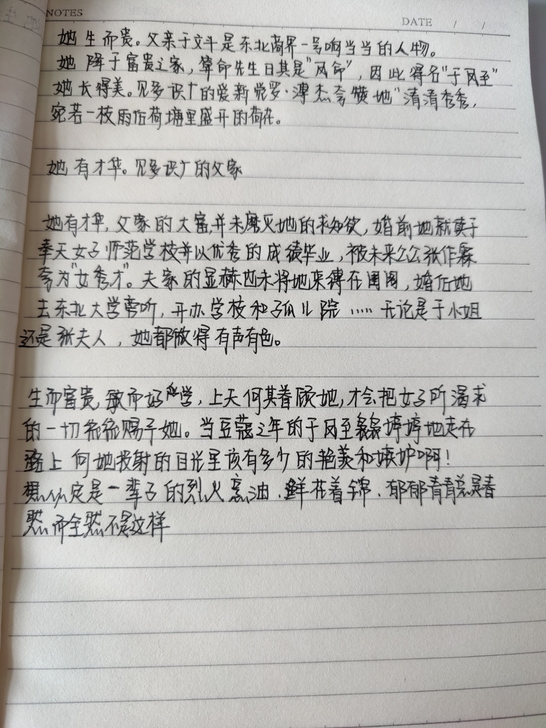 NOTES
DATE / /
她生而贵。父亲于文斗是东北商界一号响当当的人物。
她降于富贵之家,算命先生曰其是"凤命",因此得名"于凤至"
她长得美。见多识广的爱新觉罗·溥杰夸赞她"清清秀秀,
宛若一枝雨后荷塘里盛开的荷花。
她有才华。见多识广的父家
她有才华,父家的大富并未磨灭她的求知欲,婚前她就读于
奉天女子师范学校并以优秀的成绩毕业,被未来公公张作霖
夸为"女秀才"。夫家的显赫也未将她束缚在闺阁,婚后她
去东北大学旁听,开办学校和孤儿院……无论是于小姐
还是张夫人,她都做得有声有色。
生而富贵,敏而好学,上天何其眷顾她,才会把女子所渴求
的一切统统赐予她。当豆蔻之年的于凤至袅袅婷婷地走在
路上向她投射的目光里该有多少的艳羡和嫉妒啊!
想必定是一辈子的烈火烹油、鲜花着锦、郁郁青青总是春
然而全然不是这样